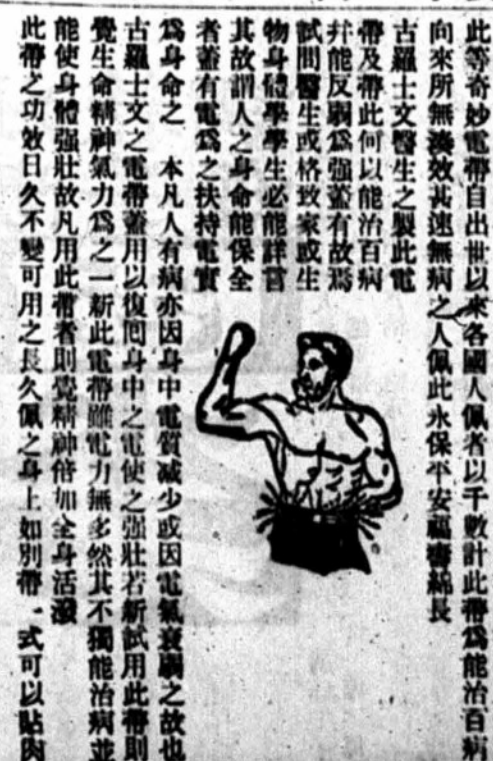 此等奇妙電帶自出世以來各國人佩者以千數計此帶爲能治百病
向來所無湊效甚速無病之人佩此永保平安福壽綿長
古羅士文醫生之製此電
帶及帶此何以能治百病
幷能反弱爲强蓋有故焉
試問醫生或格致家或生
物身體學學生必能詳言
其故謂人之身命能保全
者蓋有電爲之扶持電實
爲身命之 本凡人有病亦因身中電質减少或因電氣衰弱之故也
古羅士文之電帶蓋用以復囘身中之電使之强壯若新試用此帶則
覺生命精神氣力爲之一新此電帶雖電力無多然其不獨能治病並
能使身體强壯故凡用此帶者則覺精神倍加全身活潑
此帶之功效日久不變可用之長久佩之身上如別帶一式可以貼肉